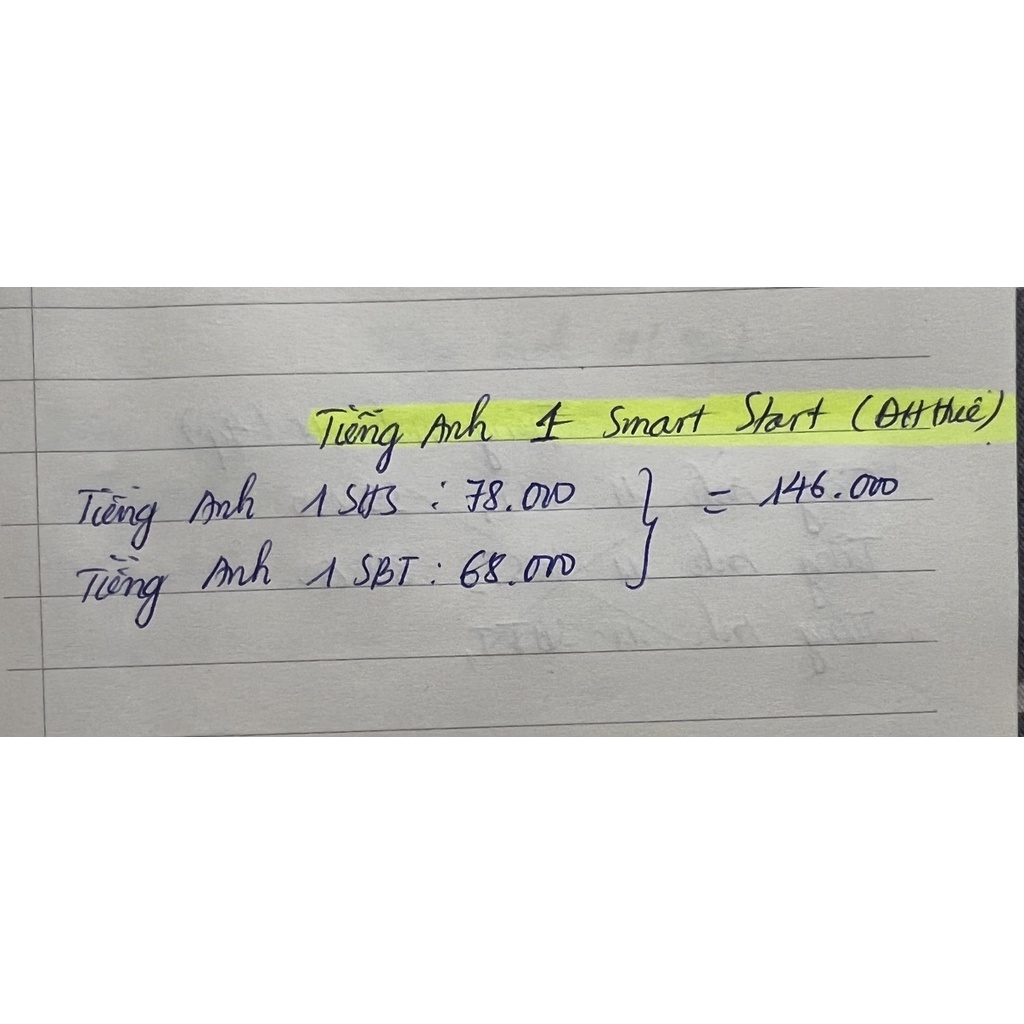 Tiếng Anh 1 Smart Start (ĐH Huế)
Tiếng Anh 1 SHS : 78.000 } = 146.000
Tiếng Anh 1 SBT : 68.000